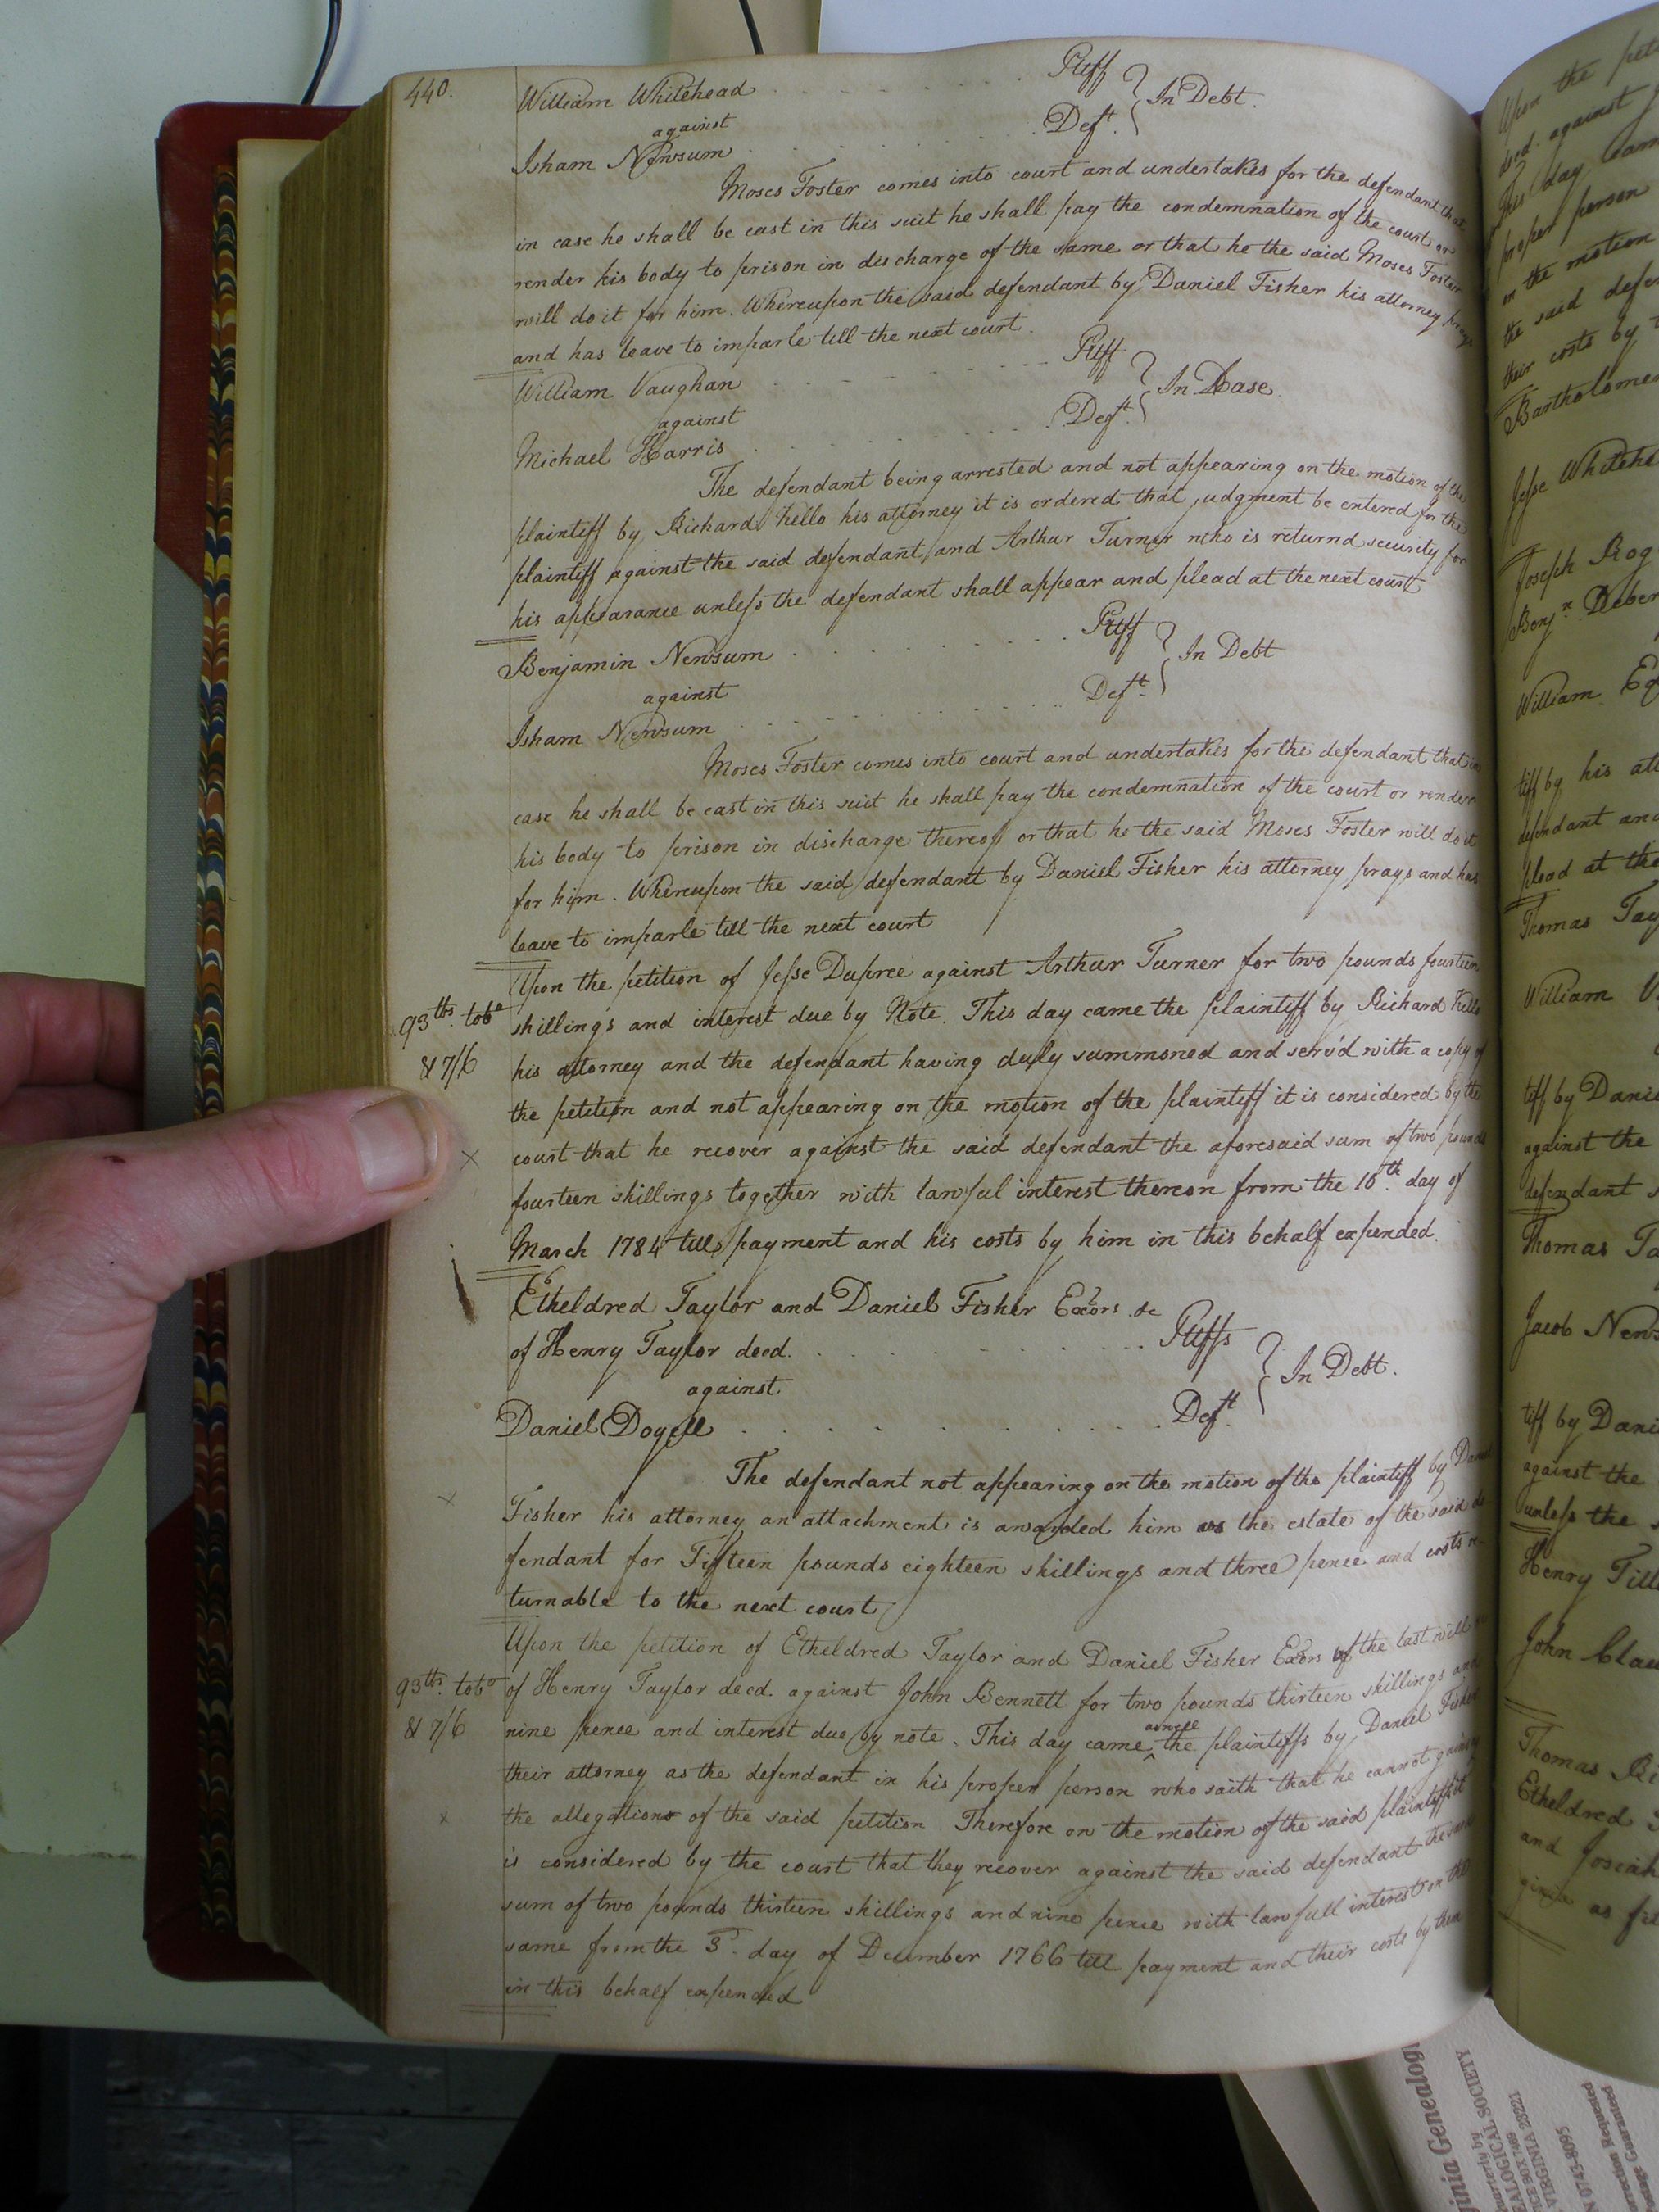 440.
William Whitehead . . . . . . Pltff
against } In Debt.
Isham Newsum . . . . . . Deft.
Moses Foster comes into court and undertakes for the defendant that
in case he shall be cast in this suit he shall pay the condemnation of the court or
render his body to prison in discharge of the same or that he the said Moses Foster
will do it for him. Whereupon the said defendant by Daniel Fisher his attorney prays
and has leave to imparle till the next court.
William Vaughan . . . . . . Pltff
against } In Case
Michael Harris . . . . . . Deft.
The defendant being arrested and not appearing on the motion of the
plaintiff by Richard Kello his attorney it is ordered that judgment be entered for the
plaintiff against the said defendant and Arthur Turner who is returnd security for
his appearance unless the defendant shall appear and plead at the next court
Benjamin Newsum . . . . . . Pltff
against } In Debt
Isham Newsum . . . . . . Deft.
Moses Foster comes into court and undertakes for the defendant that in
case he shall be cast in this suit he shall pay the condemnation of the court or render
his body to prison in discharge thereof or that he the said Moses Foster will do it
for him. Whereupon the said defendant by Daniel Fisher his attorney prays and has
leave to imparle till the next court
Upon the petition of Jesse Dupree against Arthur Turner for two pounds fourteen
93 lbs. tobo shillings and interest due by Note. This day came the plaintiff by Richard Kello
& 7/6 his attorney and the defendant having duly summoned and serv'd with a copy of
the petition and not appearing on the motion of the plaintiff it is considered by the
x court that he recover against the said defendant the aforesaid sum of two pounds
fourteen shillings together with lawful interest thereon from the 10th. day of
March 1784 till payment and his costs by him in this behalf expended.
Etheldred Taylor and Daniel Fisher Exors &c
of Henry Taylor decd. . . . . . . Pltffs
against } In Debt.
Daniel Doyell . . . . . . Deft.
The defendant not appearing on the motion of the plaintiff by Daniel
x Fisher his attorney an attachment is awarded him vs the estate of the said de
fendant for Fifteen pounds eighteen shillings and three pence and costs re-
turnable to the next court
Upon the petition of Etheldred Taylor and Daniel Fisher Exors of the last will
93 lbs. tobo of Henry Taylor decd. against John Bennett for two pounds thirteen shillings and
& 7/6 nine pence and interest due by note. This day came ^ aswell the plaintiffs by Daniel Fisher
their attorney as the defendant in his proper person who saith that he cannot gainsay
x the allegations of the said petition Therefore on the motion of the said plaintiffs it
is considered by the court that they recover against the said defendant the said
sum of two pounds thirteen shillings and nine pence with lawfull interest on the
same from the 3d. day of December 1766 till payment and their costs by them
in this behalf expended
Upon the
decd. against
This day
proper person
on the motion
the said
their costs by
Jesse
Joseph
Benjn.
William
tiff by his
defendant and
plead at the
Thomas
William
tiff by
against the
defendant
Thomas
Jacob
tiff by
against the
unless the
Henry
John
Thomas
Etheldred
and Josiah
as
LOGICAL SOCIETY
VIRGINIA 23221
0743-8095